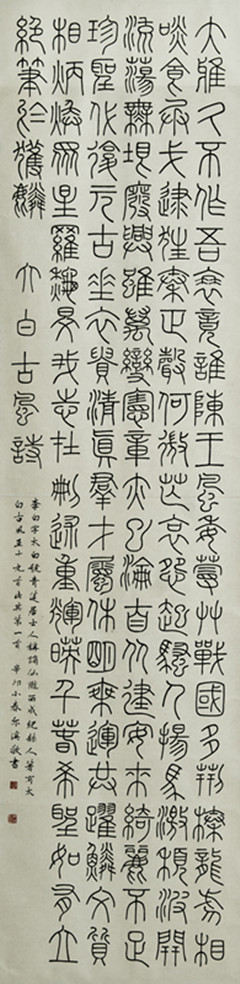 大雅久不作吾衰竟誰陳王風委蔓艸戰國多荊榛龍虎相
啖食兵戈逮狂秦正聲何微茫哀怨起騷人揚馬激頹波開
流蕩無垠廢興雖萬變憲章亦已淪自从建安來綺麗不足
珍聖代復元古垂衣貴清真羣才屬休明乘運共躍鱗文質
相炳煥眾星羅秋旻我志在刪述垂輝映千春希聖如有立
絕筆於獲麟 太白古風詩
李白字太白號青蓮居士人稱謫仙隴西成紀縣人著有太
白古風五十九首此其第一首 辛卯小春 敬書